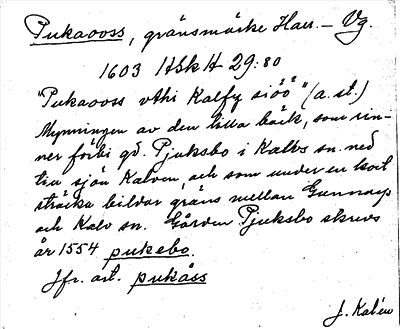 Pukaooss, gränsmärke Har. – Vg.
1603 HSkH 29:80
"Pukaooss vthi Kalfz siöö" (a. st.)
Mynningen av den lilla bäck, som rin-
ner förbi gd. Pjuksbo i Kalvs sn. ned
till sjön Kalven, och som under en kort
sträcka bildar gräns mellan Gunnarp
och Kalv sn. Gården Pjuksbo skrevs
år 1554 pukebo.
Jfr. art. pukåss
J. Kalén